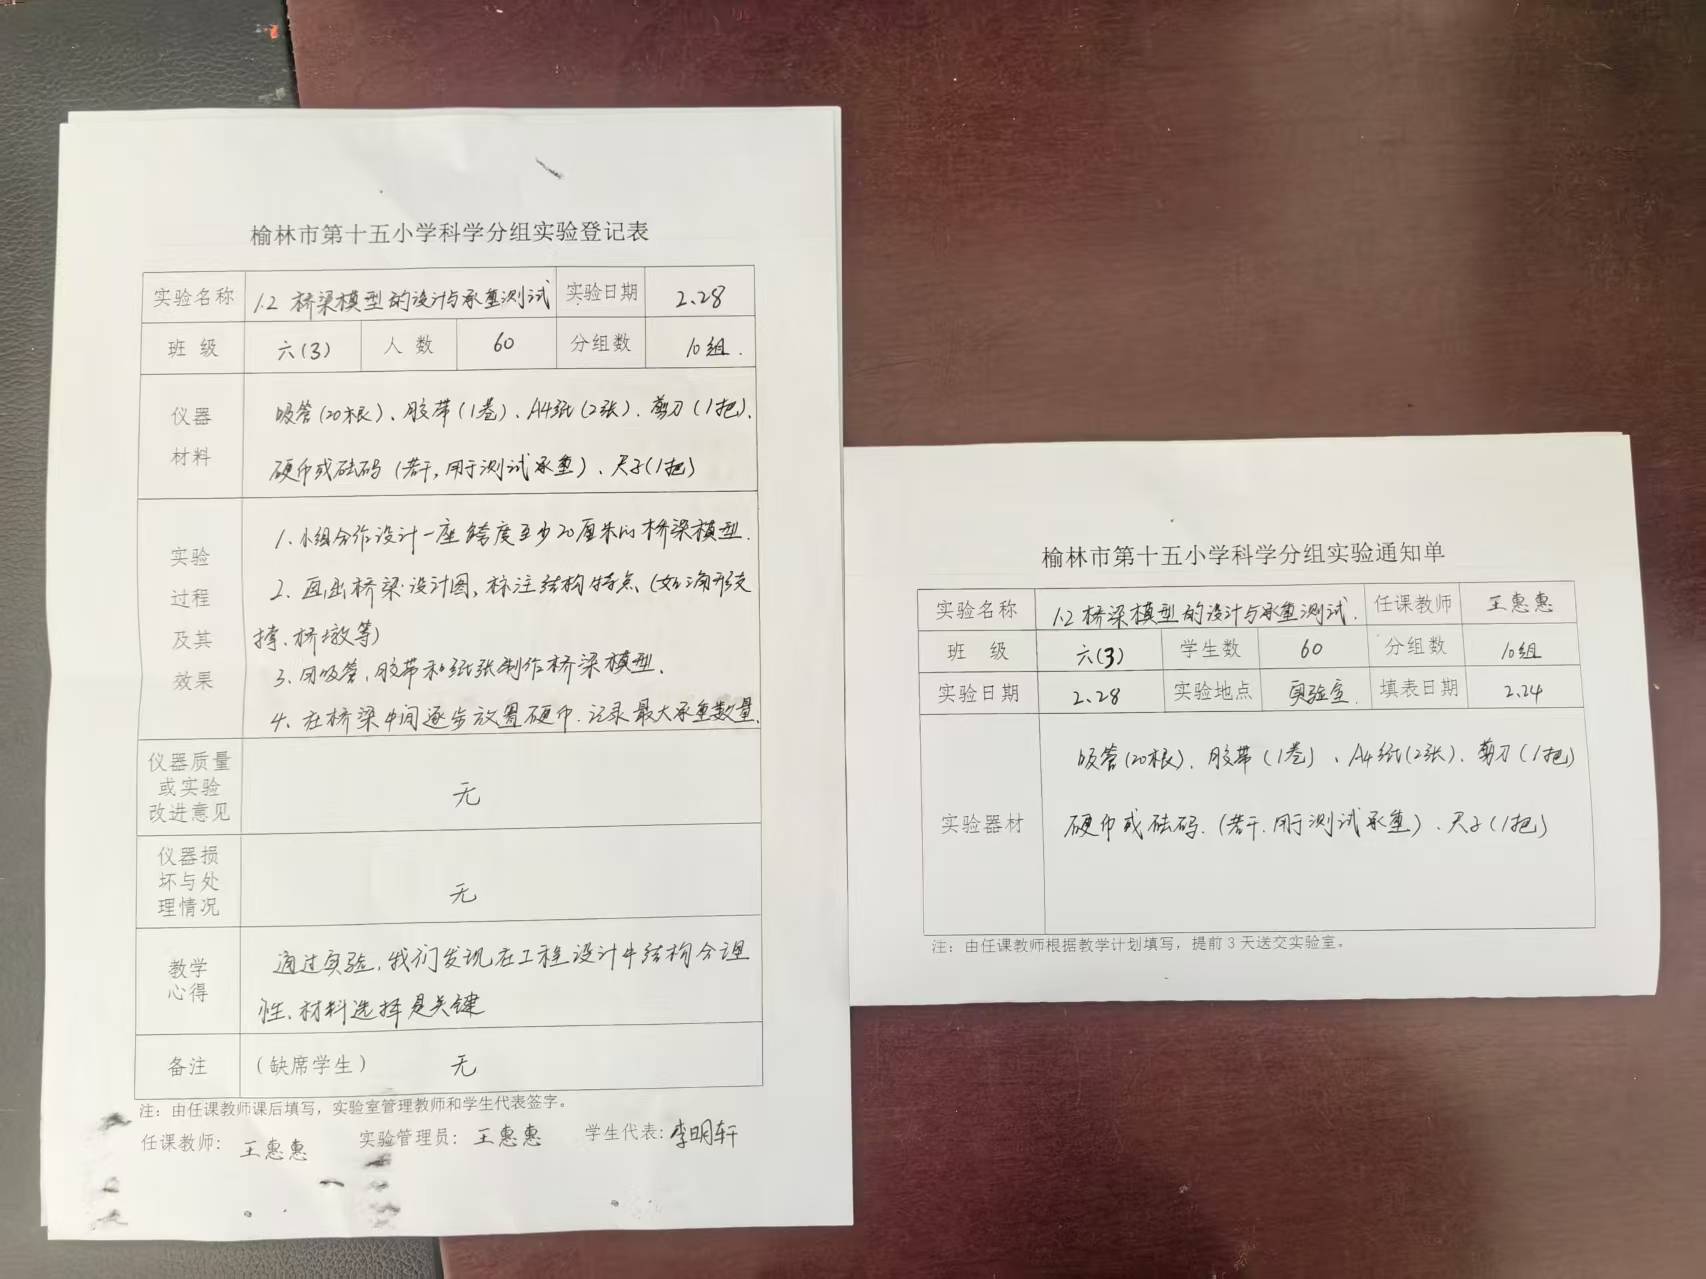 榆林市第十五小学科学分组实验登记表
实验名称 1.2 桥梁模型的设计与承重测试 实验日期 2.28
班 级 六(3) 人 数 60 分组数 10组.
仪器材料
吸管(20根)、胶带(1卷)、A4纸(2张)、剪刀(1把)、
硬币或砝码(若干,用于测试承重)、尺子(1把)
实验过程及其效果
1、小组合作设计一座跨度至少20厘米的桥梁模型.
2、画出桥梁设计图,标注结构特点(如三角形支
撑、桥墩等)
3、用吸管、胶带和纸张制作桥梁模型.
4、在桥梁中间逐步放置硬币.记录最大承重数量.
仪器质量或实验改进意见
无
仪器损坏与处理情况
无
教学心得
通过实验,我们发现在工程设计中结构合理
性、材料选择是关键
备注 (缺席学生) 无
注:由任课教师课后填写,实验室管理教师和学生代表签字。
任课教师: 王惠惠 实验管理员: 王惠惠 学生代表: 李明轩
榆林市第十五小学科学分组实验通知单
实验名称 1.2 桥梁模型的设计与承重测试. 任课教师 王惠惠
班 级 六(3) 学生数 60 分组数 10组
实验日期 2.28 实验地点 实验室. 填表日期 2.24
实验器材
吸管(20根)、胶带(1卷)、A4纸(2张)、剪刀(1把)
硬币或砝码.(若干.用于测试承重)、尺子(1把)
注:由任课教师根据教学计划填写,提前3天送交实验室。